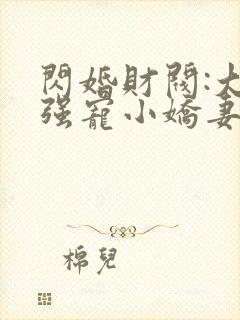 閃婚財閥:大
强寵小嬌妻
棉兒